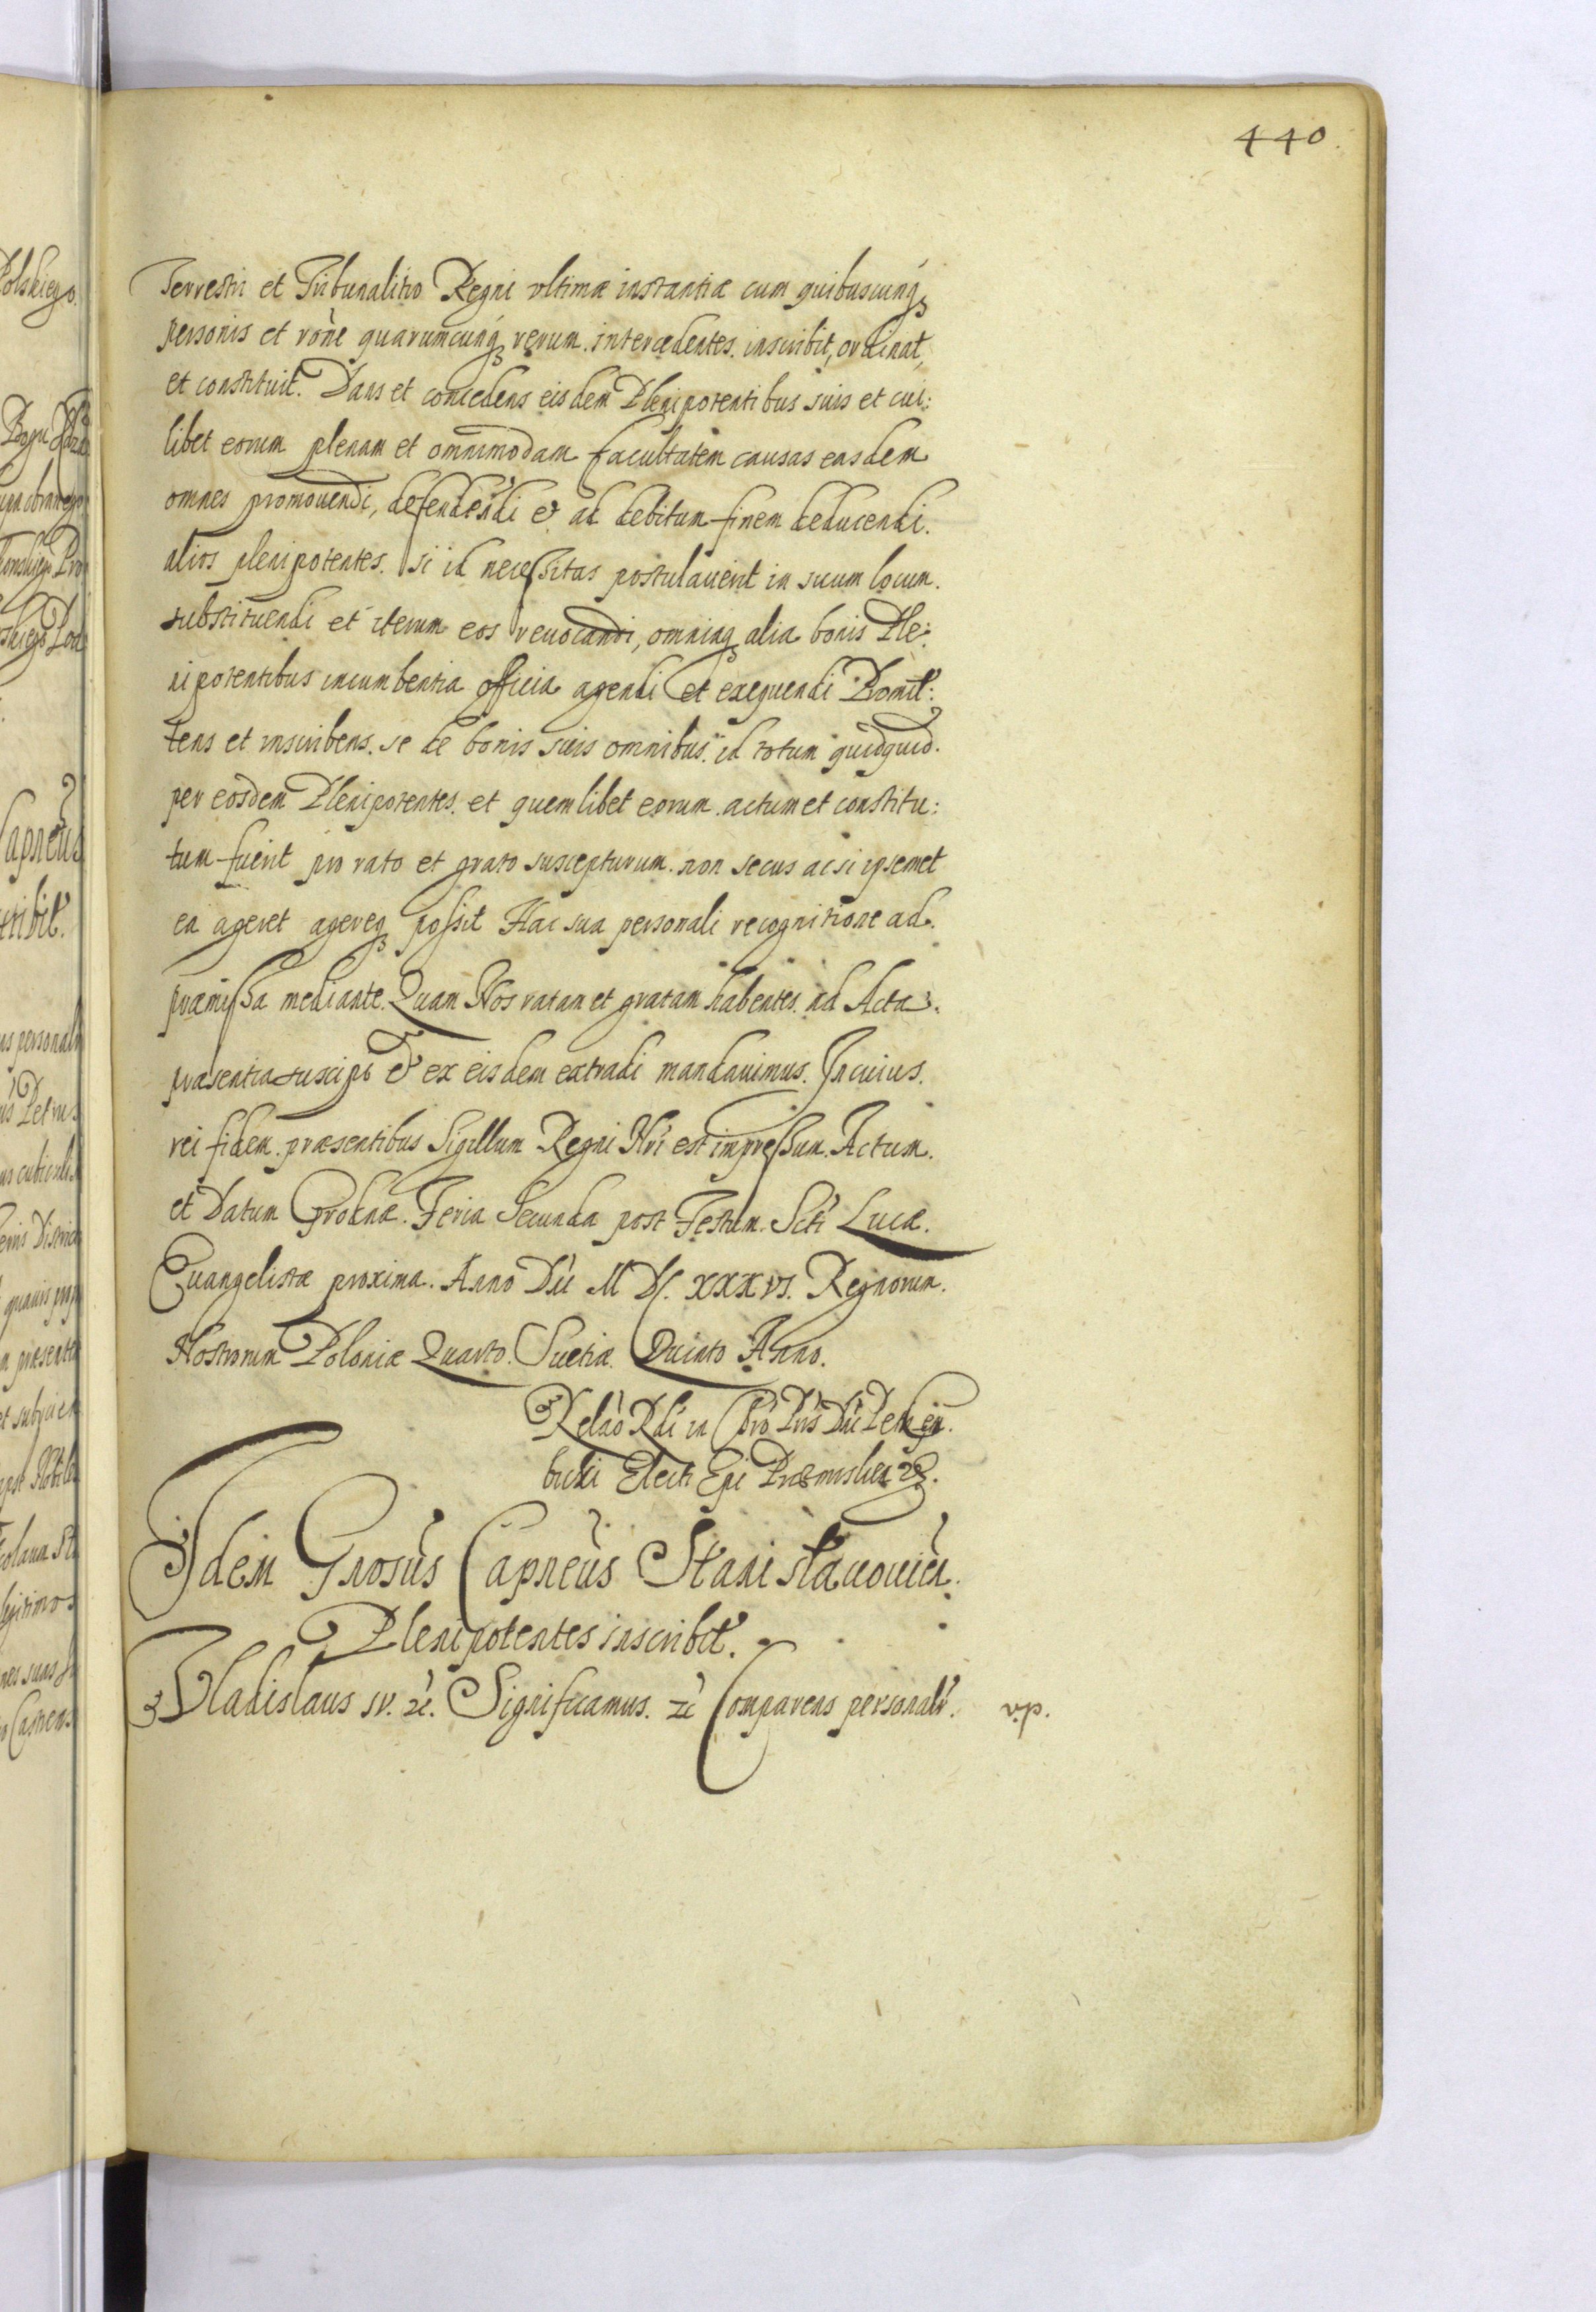 440.
Terrestri et Tribunalitio Regni vltimæ instantiæ cum quibuscunq́ꝫ
personis et rone quarumcunq́ꝫ rerum. intercedentes. inscribit, ordinat,
et constituit. Dans et concedens eisdem Plenipotentibus suis et cui:
libet eorum plenam et omnimodam facultatem causas easdem
omnes promouendi, defendendi & ad debitum finem deducendi.
alios plenipotentes. si id necessitas postulauerit in suum locum.
substituendi et iterum eos reuocandi, omniaqꝫ alia bonis Ple:
nipotentibus incumbentia officia agendi et exequendi Promit:
tens et inscribens. se de bonis suis omnibus. id totum quidquid.
per eosdem Plenipotentes. et quemlibet eorum. actum et constitu:
tum fuerit pro rato et grato suscepturum. non secus ac si ipsemet
ea ageret agereqꝫ possit Hac sua personali recognitione ad.
præmissa mediante. Quam Nos ratam et gratam habentes. ad Acta.
præsentia suscipi & ex eisdem extradi mandauimus. In cuius.
rei fidem. præsentibus Sigillum Regni Nri est impressum. Actum.
et Datum Grodnæ. Feria Secunda post Festum. Scti Lucæ.
Euangelistæ proxima. Anno Dni M DC. XXXVI. Regnorum.
Nostrorum Poloniæ Quarto. Suetiæ. Quinto Anno.
Relao Rdi in Chro Pris Dni Petri Gem
bicki Electi Epi Præmislien
Idem Gnosus Capneus Stanislauouien.
Plenipotentes inscribit.
Vladislaus IV. zc. Significamus. zc Comparens personalr.
v.p.
Polskiego.
Capneus
cribit.
us personalr
us Petrus
us cubiculi
legitimos